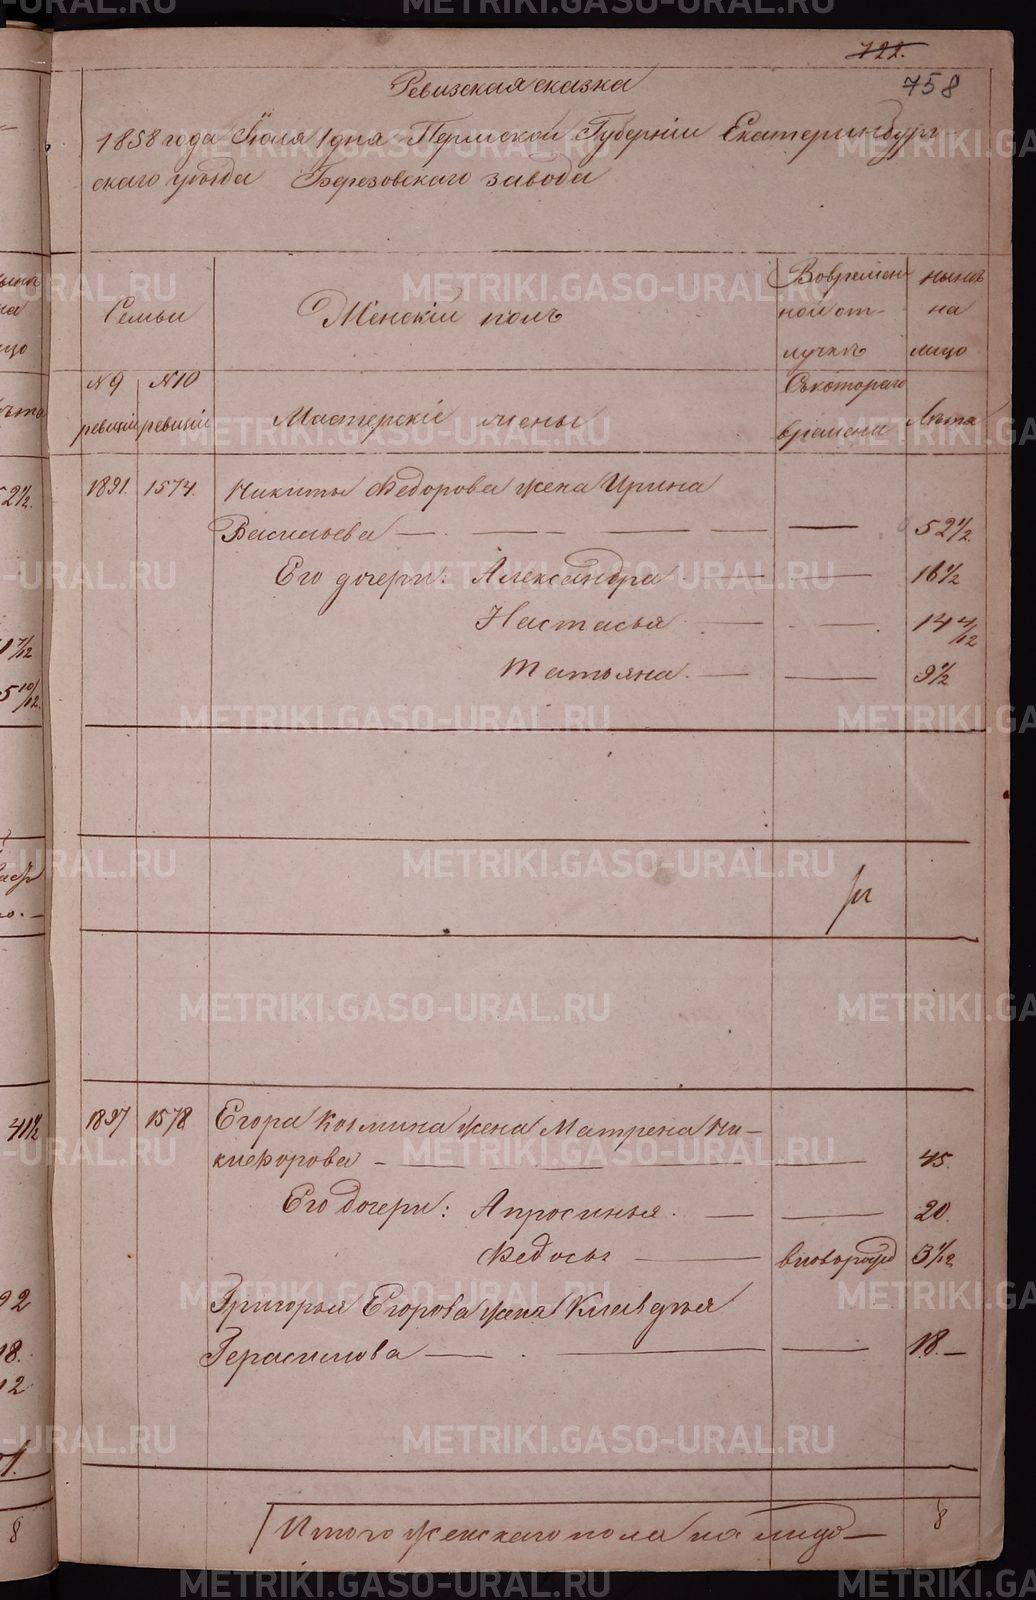 722.
758
Ревизская сказка
1858 года Июля 1 дня Пермской Губерніи Екатеринбург
скаго уѣзда Березовскаго завода
Семьи
Женскій полъ
Вовремен
ной от-
лучкѣ
нынѣ
на
лицо
№ 9
ревизіи
№ 10
ревизіи
Мастерскіе жены
Съкотораго
времени
Лѣта
1891. 1574. Никиты Ѳедорова жена Ирина
Васильева — — — — — 52 1/2
Его дочери: Александра — — 16 1/2
Настасья — — 14 4/12
Татьяна. — — 9 1/2
1897 1578 Егора Козмина жена Матрена Ни-
киѳорова — — — — — 45.
Его дочери: Апросинья. — — 20.
Ѳедосья — вновьрожд
Григорья Егорова жена Клавдѣя
Герасимова — — — 18. —
Итого женскаго пола на лицо — 8
METRIKI.GASO-URAL.RU